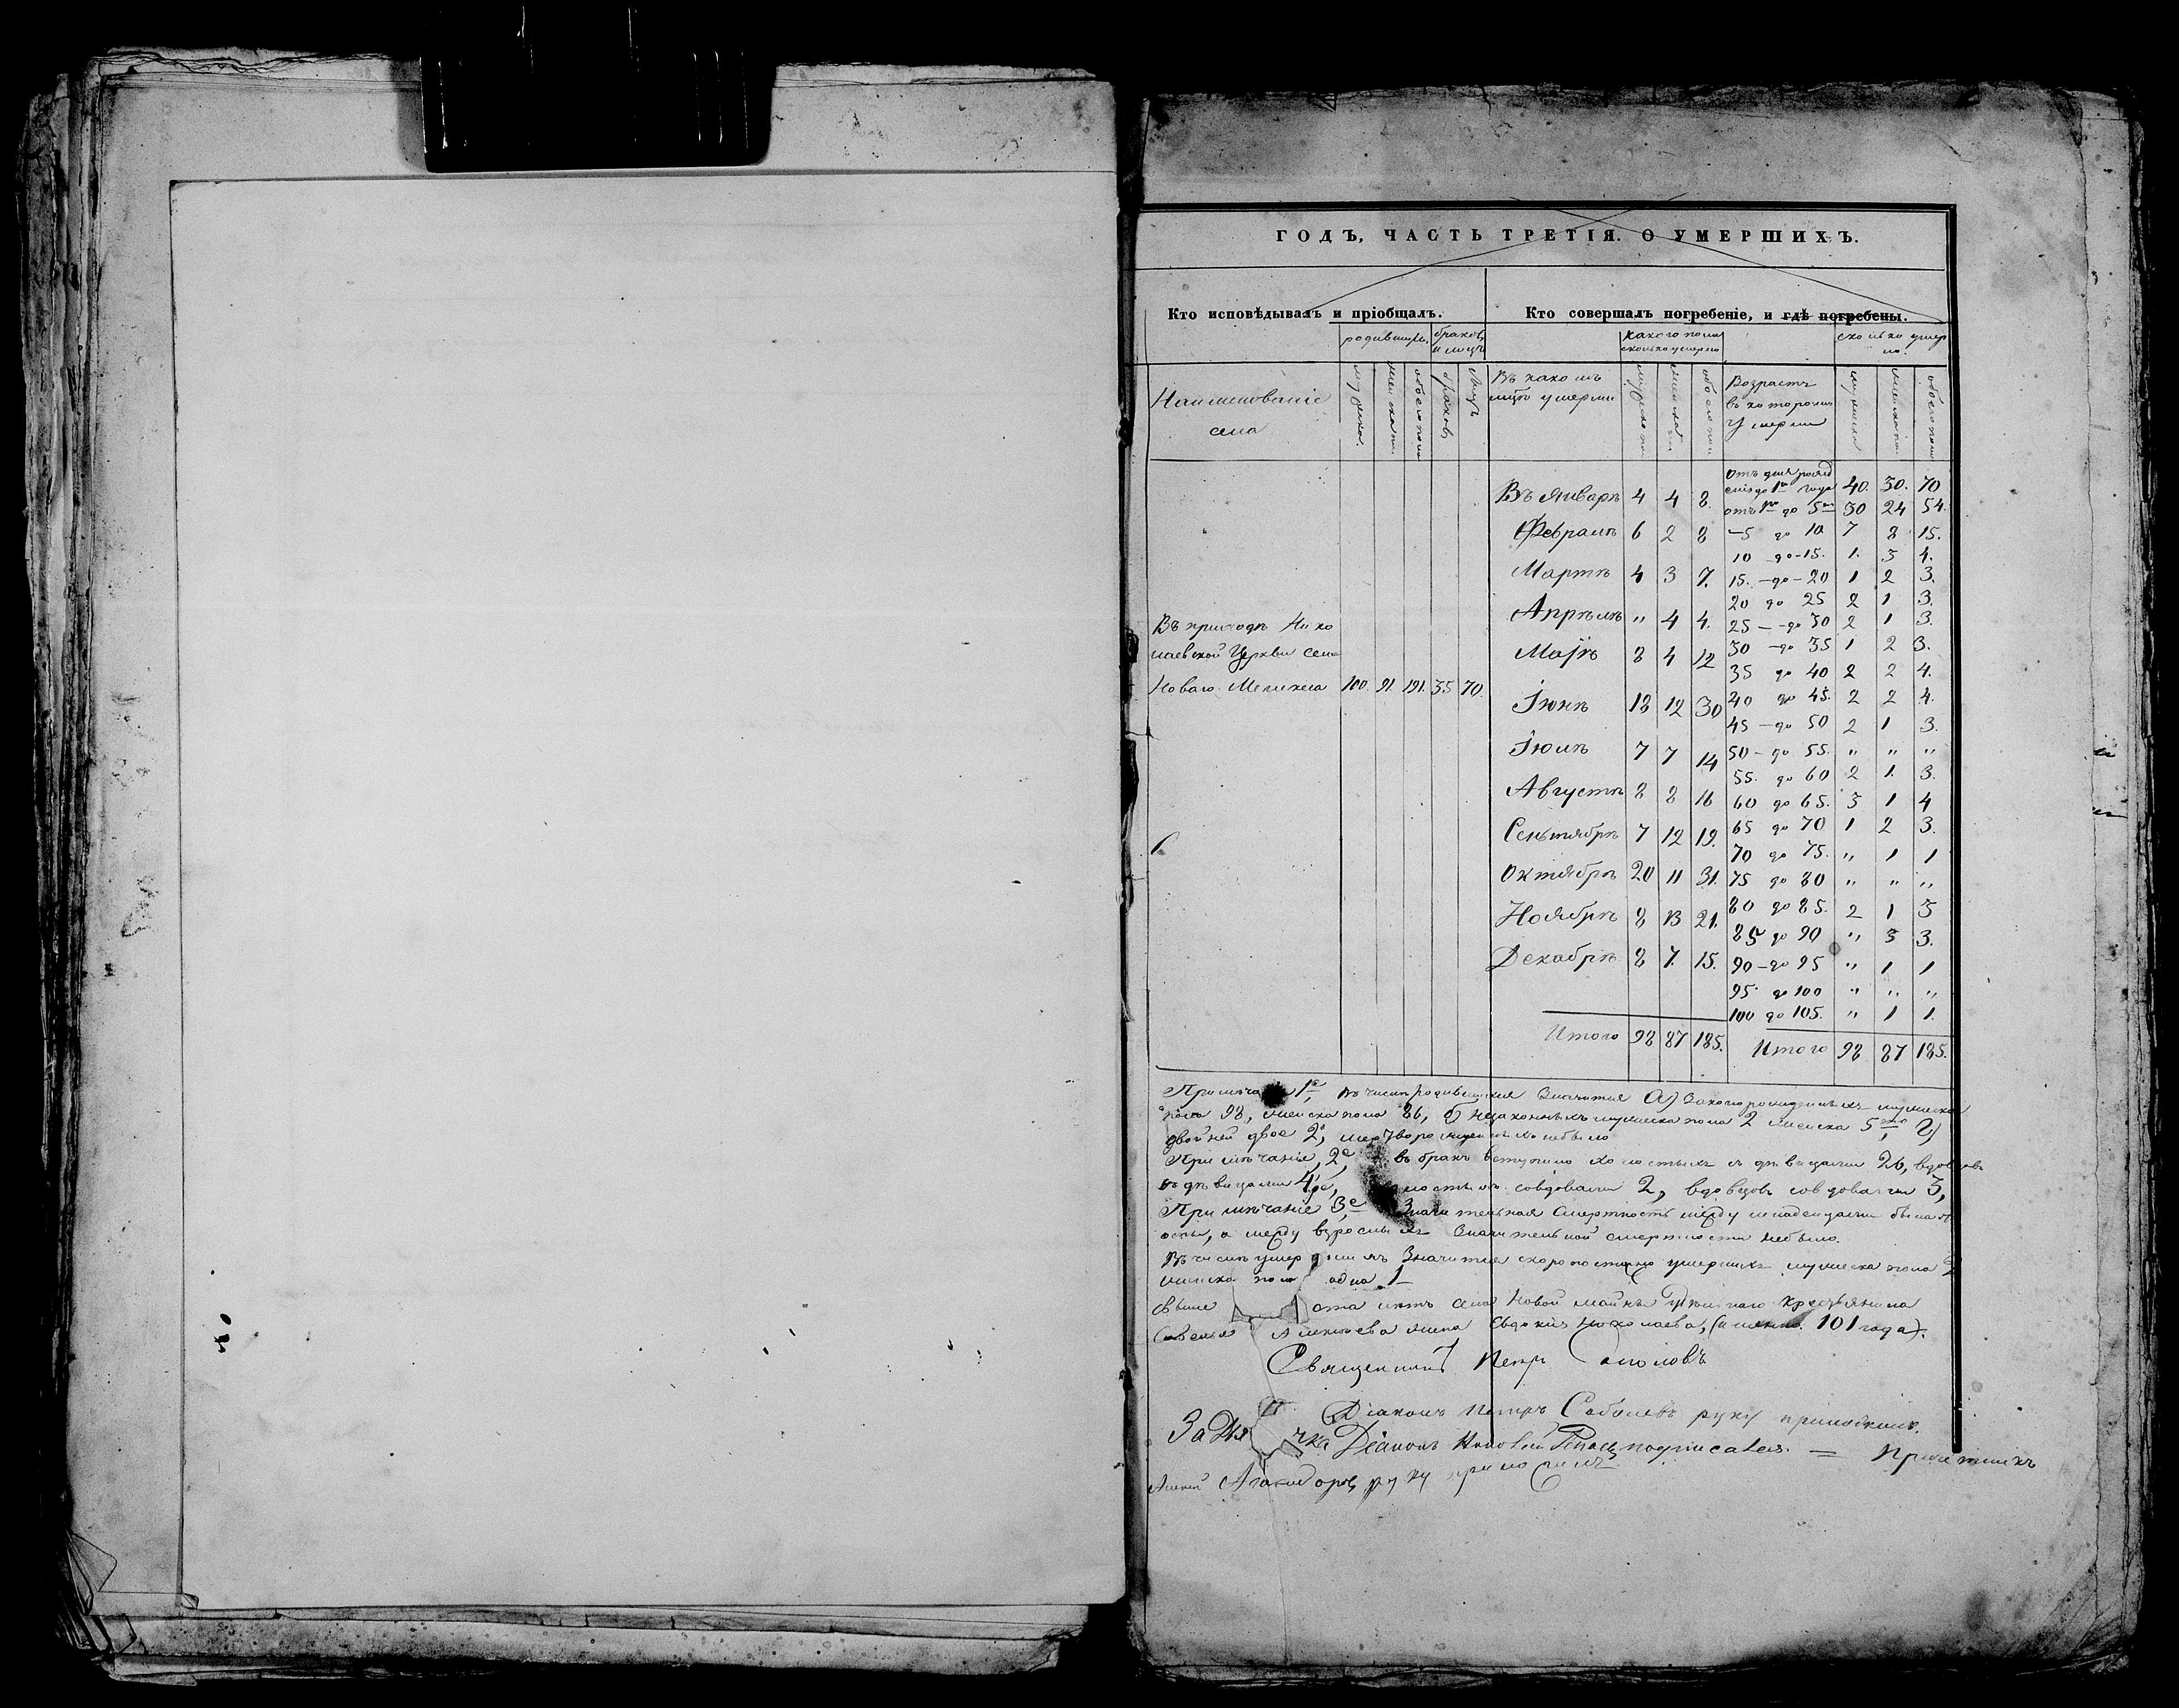 ГОДЪ, ЧАСТЬ ТРЕТІЯ. О УМЕРШИХЪ.
Кто исповѣдывалъ и пріобщалъ. Кто совершалъ погребеніе, и гдѣ погребены.
родившихъ. браковъ и лицъ какого пола сколько умерло сколько умерло.
Наименованіе села мужска. женска пола обоего пола браковъ лицъ Въ какомъ мцѣ умерли мужска по женска обоего пол Возрастъ въ которомъ умерли мужска женска по обоего пола
Въ приходѣ Николаевской Церкви села Новаго Мелекеса 100. 91. 191. 35 70.
Въ Январѣ 4 4 8.
Февралѣ 6 2 8
Мартѣ 4 3 7.
Апрѣлѣ " 4 4.
Маѣ 8 4 12
Іюнѣ 18 12 30
Іюлѣ 7 7 14
Августѣ 8 8 16
Сентябрѣ 7 12 19.
Октябрѣ 20 11 31.
Ноябрѣ 8 13 21.
Декабрѣ 8 7. 15.
Итого 98 87 185.
Отъ дня рожденія до 1го года 40. 30. 70
отъ 1го до 5ти 30 24 54.
-5 до 10 7 8 15.
10 до-15. 1. 3 4.
15. -до- 20 1 2 3.
20 до 25 2 1 3.
25 - -до 30 2 1 3.
30 -до 35 1 2 3.
35 до 40 2 2 4.
40 до 45. 2 2 4.
45 -до 50 2 1 3.
50- до 55. " " "
55. до 60 2 1. 3.
60 до 65. 3 1 4
65 до 70 1 2 3.
70 до 75. " 1 1
75 до 80 " " "
80 до 85. 2 1 3
85 до 90 " 3 3.
90 -до 95 " 1 1
95 до 100 " " "
100 до 105. " 1 1.
Итого 98 87 185.
1е, въ числѣ родившихся значится а) законорожденныхъ мужска
пола 98, женска пола 86, б) незаконныхъ мужска пола 2 женска 5
двойней двое 2, мертворожденныхъ небыло
Примѣчаніе 2е, въ бракъ вступило холостыхъ съ дѣвицами 26, вдовцовъ
съ дѣвицами 4, совдовами 2, вдовцовъ совдовами 3,
Примѣчаніе 3е Значительная смертность между младенцами была отъ
оспы, а между взрослыми значительной смертности небыло.
Въ числѣ умершихъ значится скоропостижно умершихъ мужска пола 2
женска пола одна 1
свыше ста лѣтъ села Новой майны Удѣльнаго крестьянина
Савелья жена Евдокия Николаева, (именно 101 года).
Священникъ Петръ
Діаконъ Петръ Соболевъ руку приложилъ.
За Дьячка Діаконъ подписался. = Причетникъ
руку приложилъ